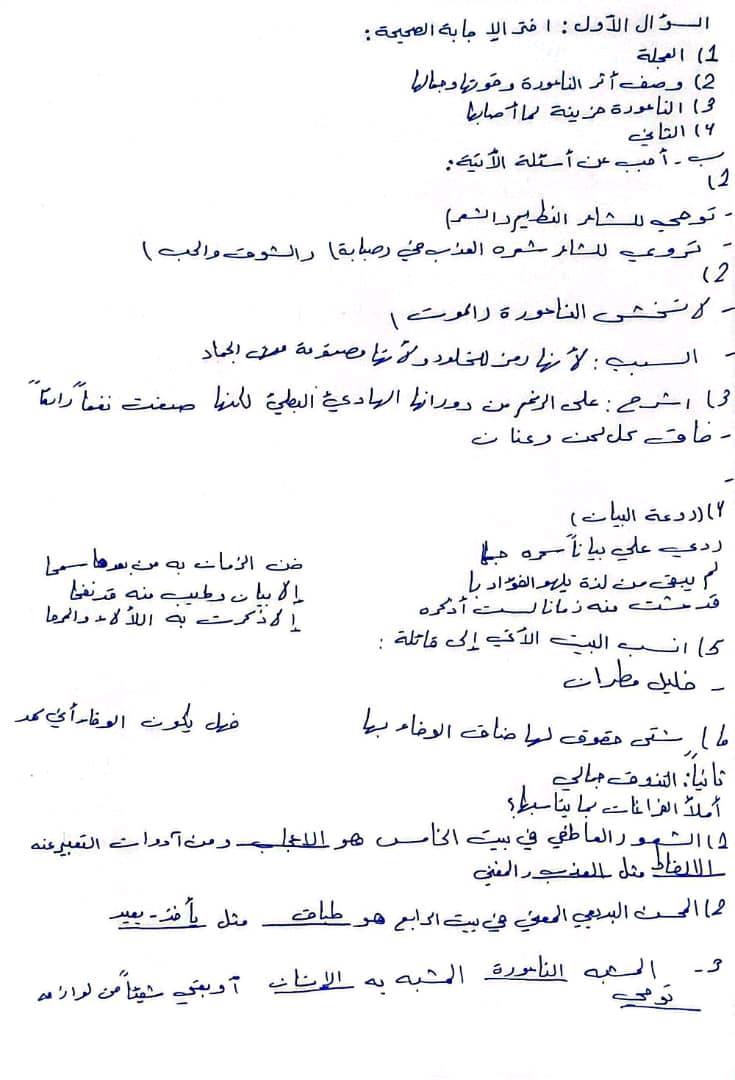 السؤال الأول: اختر الإجابة الصحيحة:
1) العجلة
2) وصف أثر الناعورة وقوتها وجمالها
3) الناعورة حزينة لما أصابها
4) الثاني
ب - أجب عن أسئلة الآتية:
1)
- توحي للشاعر النظيم (الشعر)
- تروي للشاعر شعره العذب في (صبابة) (الشوق والحب)
2)
- لا تخشى الناعورة (الموت)
- السبب: لأنها رمز للخلود ولأنها مصنوعة من الجماد
3) اشرح: على الرغم من دورانها الهادئ البطيئ لكنها صنعت نغماً رائعاً
- فاق كل لحن وغناء
-
4) (روعة البيان)
ردي علي بياناً سره ضن الزمان به من بعدها سمحا
لم يبق من لذة يلهو الفؤاد بها إلا بيان وطيب منه قد نفحا
قد عشت منه زمانا لست أذكره إلا ذكرت به اللألاء والمرحا
5) انسب البيت الآتي إلى قائلة:
- خليل مطران
6) شتى حقوق لها ضاق الوفاء بها فهل يكون الوفاء أي كمد
ثانياً: التذوق جمالي
أملأ الفراغات بما يناسبها؟
1) الشعور العاطفي في بيت الخامس هو الاعجاب ومن أدوات التعبير عنه
الالفاظ مثل العذب، المغني
2) المحسن البديعي المعني في بيت الرابع هو طباق مثل يأخذ - يعيد
3- المشبه الناعورة المشبه به الإنسان أوبقي شيئاً من لوازمه
توحي